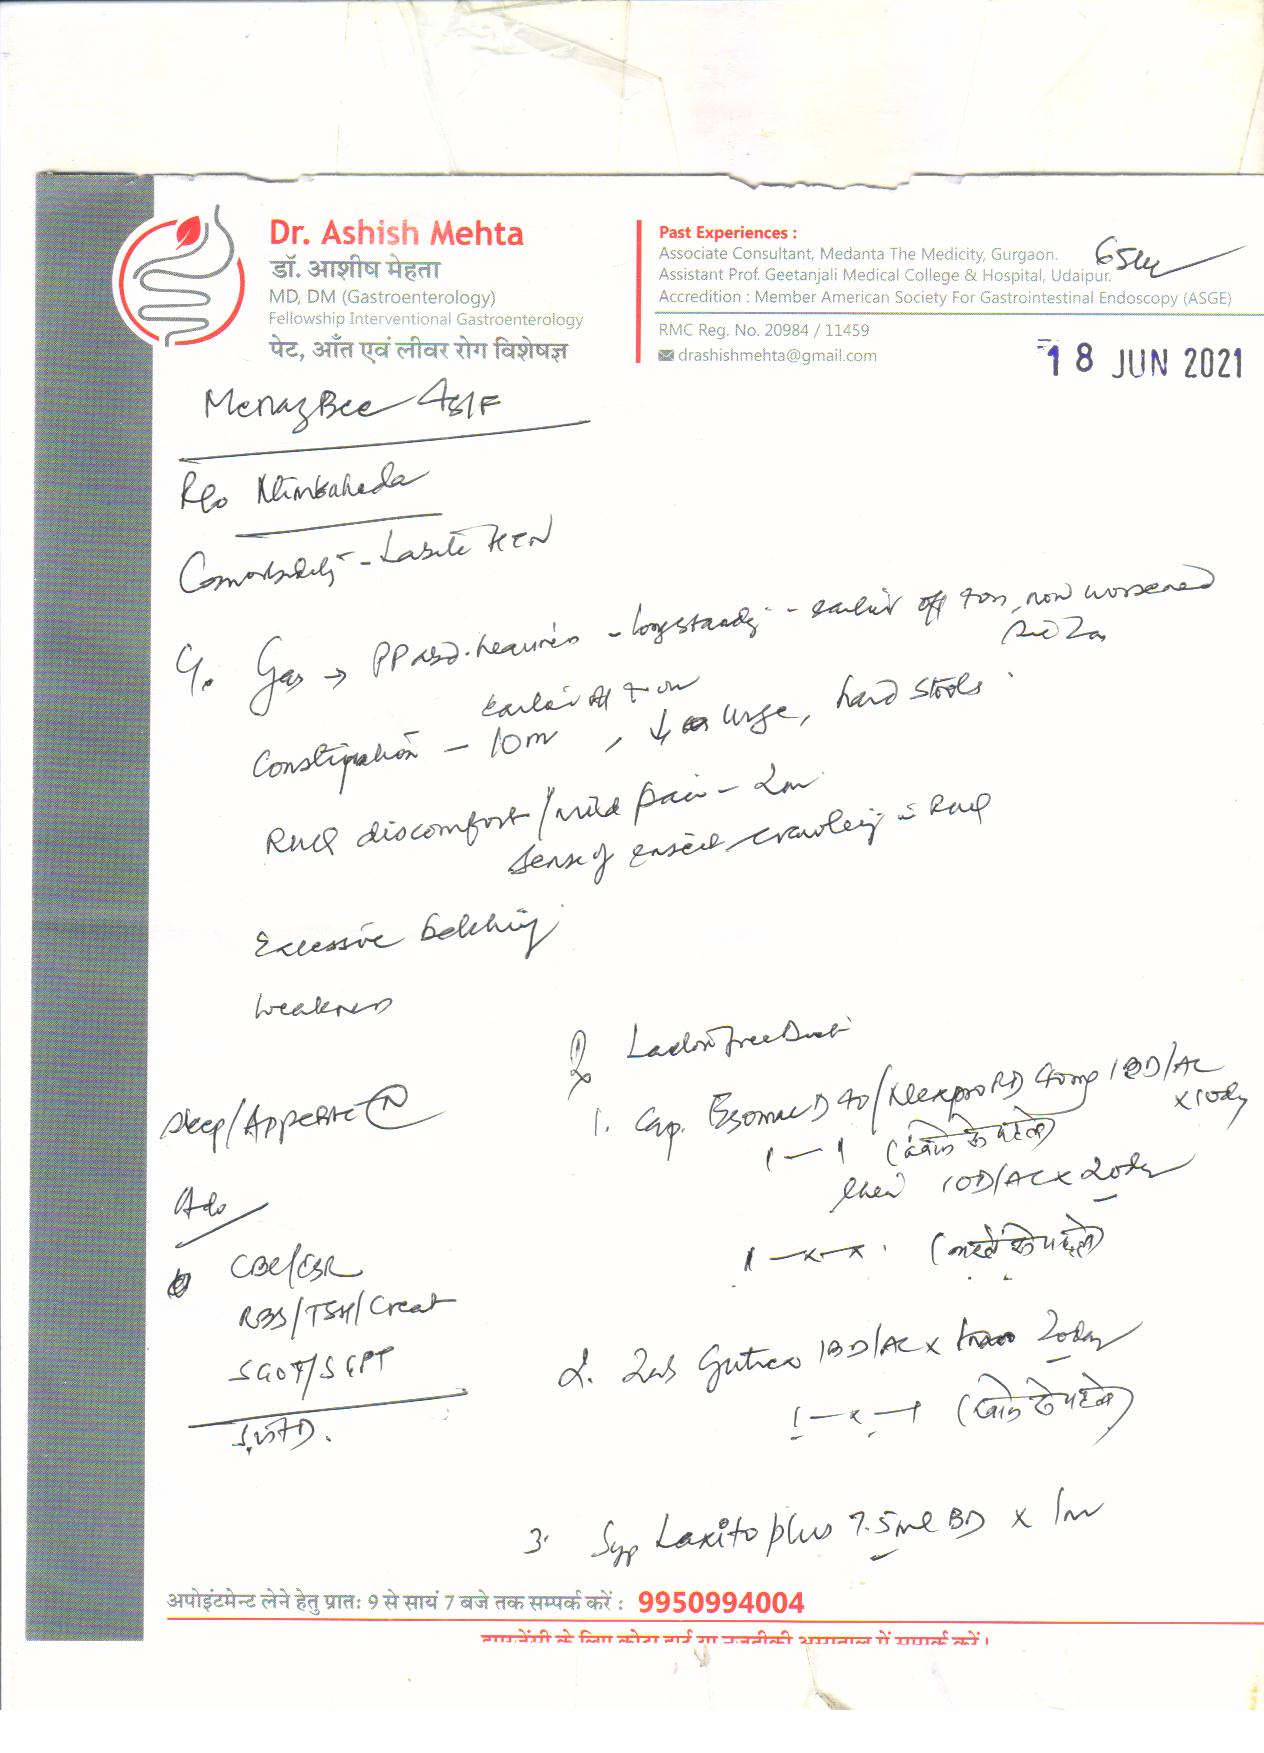 Dr. Ashish Mehta
डॉ. आशीष मेहता
MD, DM (Gastroenterology)
Fellowship Interventional Gastroenterology
पेट, आँत एवं लीवर रोग विशेषज्ञ
Past Experiences :
Associate Consultant, Medanta The Medicity, Gurgaon.
Assistant Prof. Geetanjali Medical College & Hospital, Udaipur.
Accredition : Member American Society For Gastrointestinal Endoscopy (ASGE)
RMC Reg. No. 20984 / 11459
drashishmehta@gmail.com
18 JUN 2021
R/o
Comorbidity - Labile HTN
Gas → longstanding - earlier off & on, now worsened
earlier off & on
Constipation - 10m, ↓ urge, hard stools
RUQ discomfort/mild pain - 2m
Sense of insect crawling in RUQ
Excessive belching
Weakness
Sleep/Appetite (N)
Adv
CBC/ESR
RBS/TSH/Creat
SGOT/SGPT
Rx
1. Cap. 1BD/AC x 10day
1 — 1 (खाने से पहले)
then 1OD/AC x 20day
1 — x — x
2. Tab 1BD/AC x 20day
1 — x — 1 (खाने से पहले)
3. Syp Laxito plus 7.5ml BD x 1m
अपोइंटमेन्ट लेने हेतु प्रातः 9 से सायं 7 बजे तक सम्पर्क करें : 9950994004